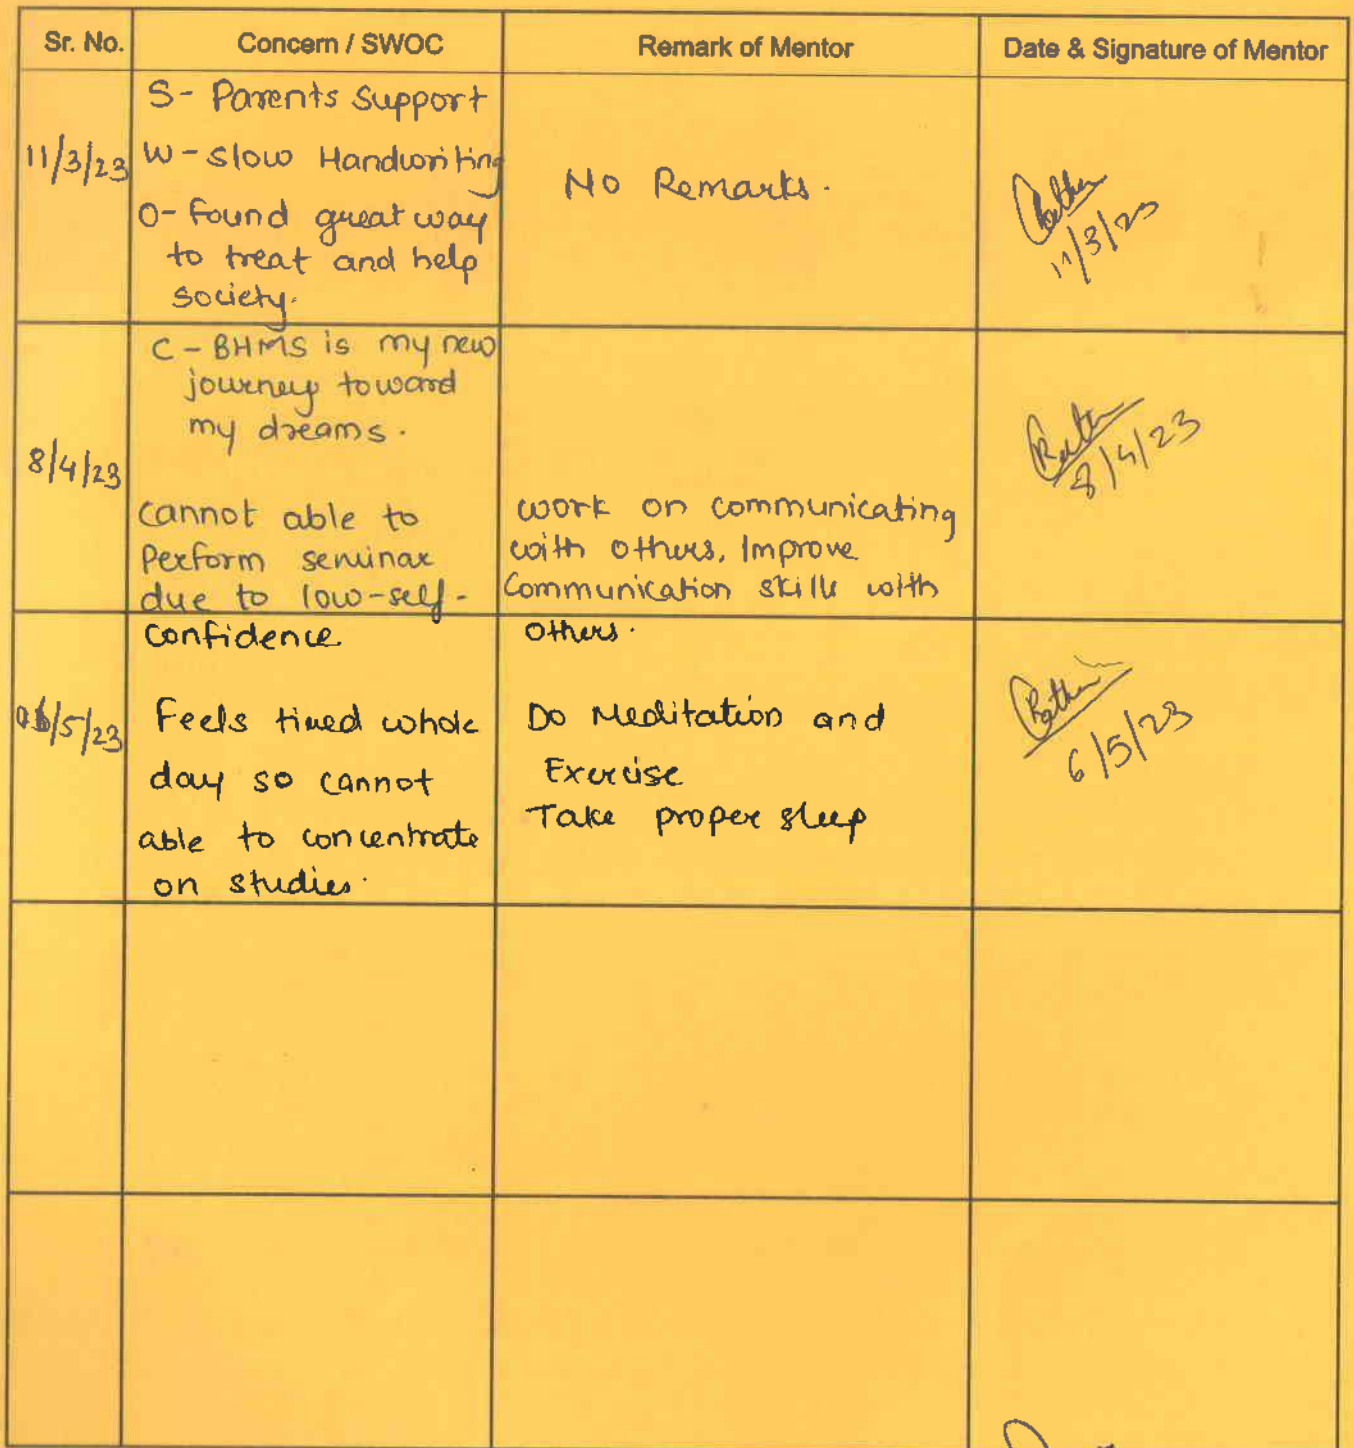 Sr. No.
Concern / SWOC
Remark of Mentor
Date & Signature of Mentor
11/3/23
S- Parents Support
W - Slow Handwriting
O- found great way
to treat and help
society.
No Remarks.
11/3/23
8/4/23
C - BHMS is my new
journey toward
my dreams.
cannot able to
Perform seminar
due to low-self-
confidence.
work on communicating
with others. Improve
Communication skills with
others.
8/4/23
06/5/23
Feels tired whole
day so cannot
able to concentrate
on studies.
Do Meditation and
Exercise
Take proper sleep
6/5/23